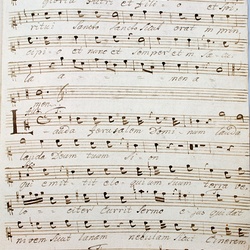 gloria Patri et Filio et Spi
ritui Sancto Sancto Sicut erat in prin
cipio et nunc et semper et in sæcu
la a men a
men
Lauda Jerusalem Dominum lauda
lauda Deum tuum Sion
qui emittit eloquium suum terræ
citer currit Sermo ejus qui dat
nivem sicut lanam nebulam sicut cinerem